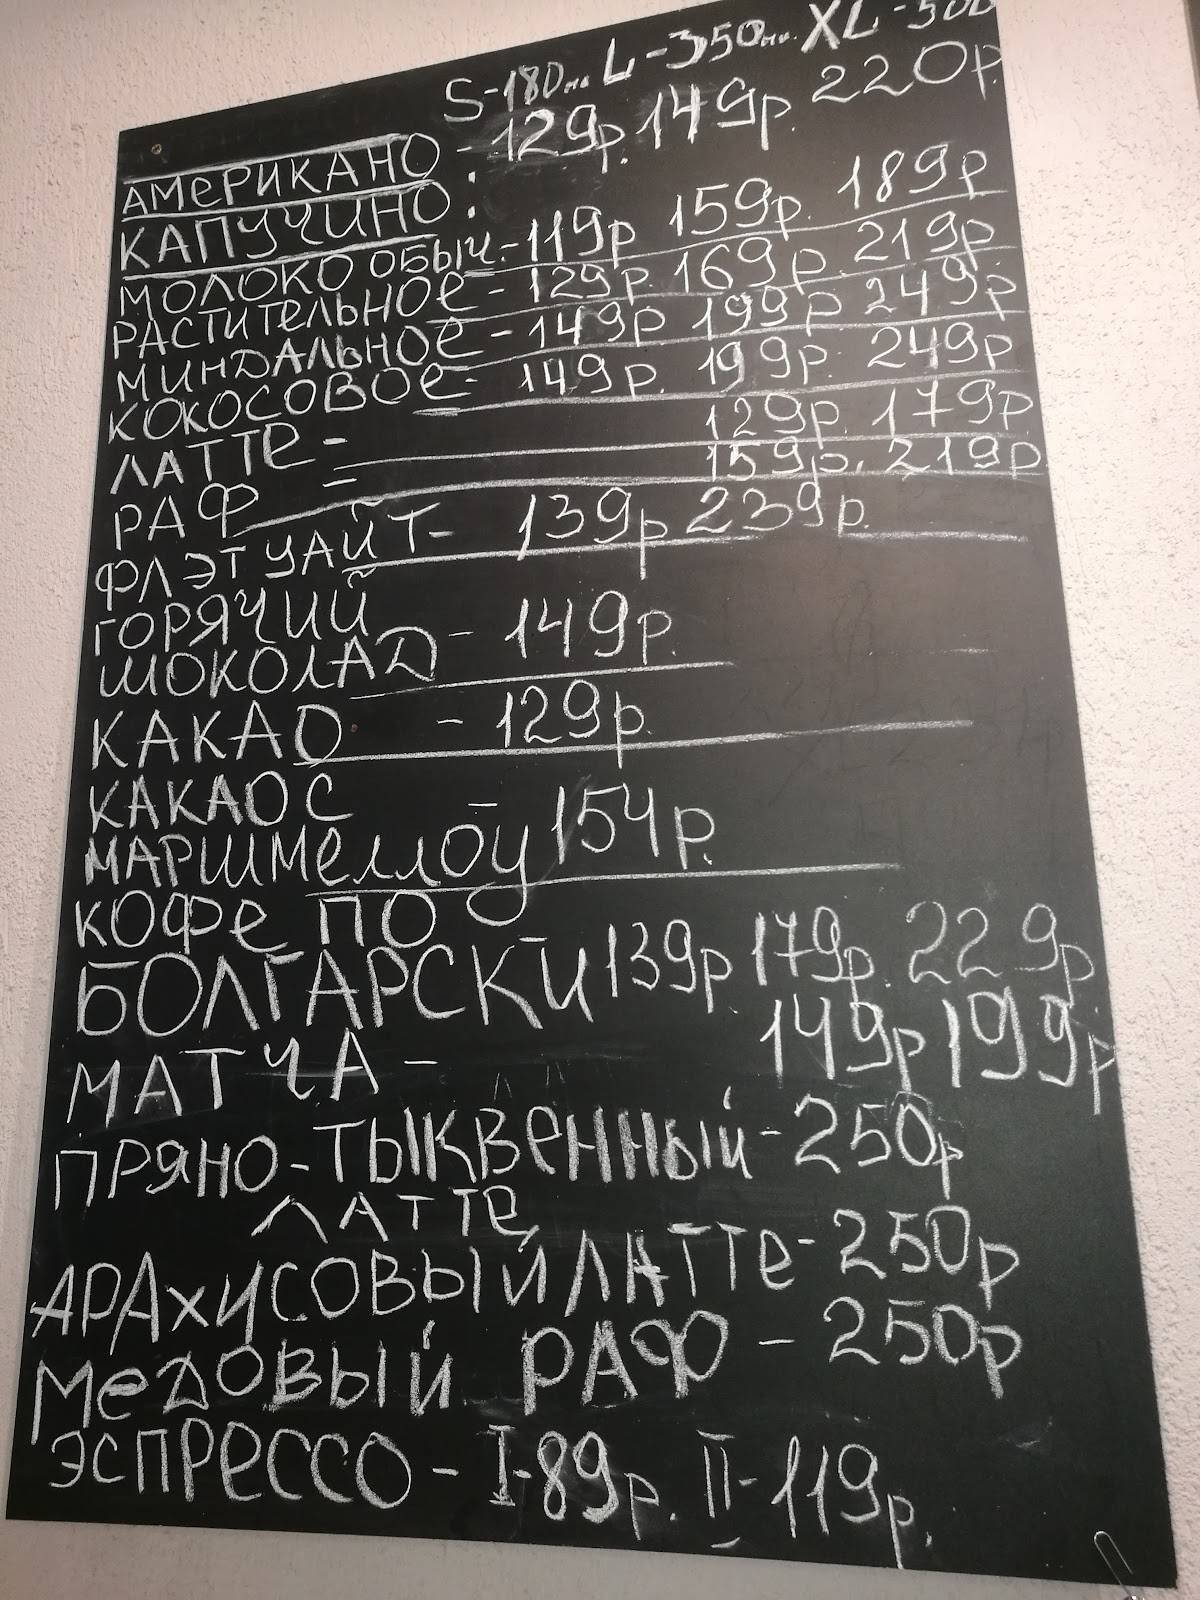 S-180мл L-350мл. XL-500
АМЕРИКАНО - 129р. 149р. 220р.
КАПУЧИНО:
МОЛОКО ОБЫЧ.-119р 159р. 189р
РАСТИТЕЛЬНОЕ - 129р. 169р. 219р
МИНДАЛЬНОЕ - 149р. 199р 249р
КОКОСОВОЕ - 149р. 199р. 249р
ЛАТТЕ - 129р. 179р
РАФ - 159р. 219р
ФЛЭТ УАЙТ - 139р 239р.
ГОРЯЧИЙ
ШОКОЛАД - 149р.
КАКАО - 129р.
КАКАО С
МАРШМЕЛЛОУ - 154р.
КОФЕ ПО
БОЛГАРСКИ - 139р 179р. 229р.
МАТЧА - 149р 199р
ПРЯНО-ТЫКВЕННЫЙ - 250р
ЛАТТЕ
АРАХИСОВЫЙ ЛАТТЕ - 250р
МЕДОВЫЙ РАФ - 250р
ЭСПРЕССО - I-89р. II-119р.